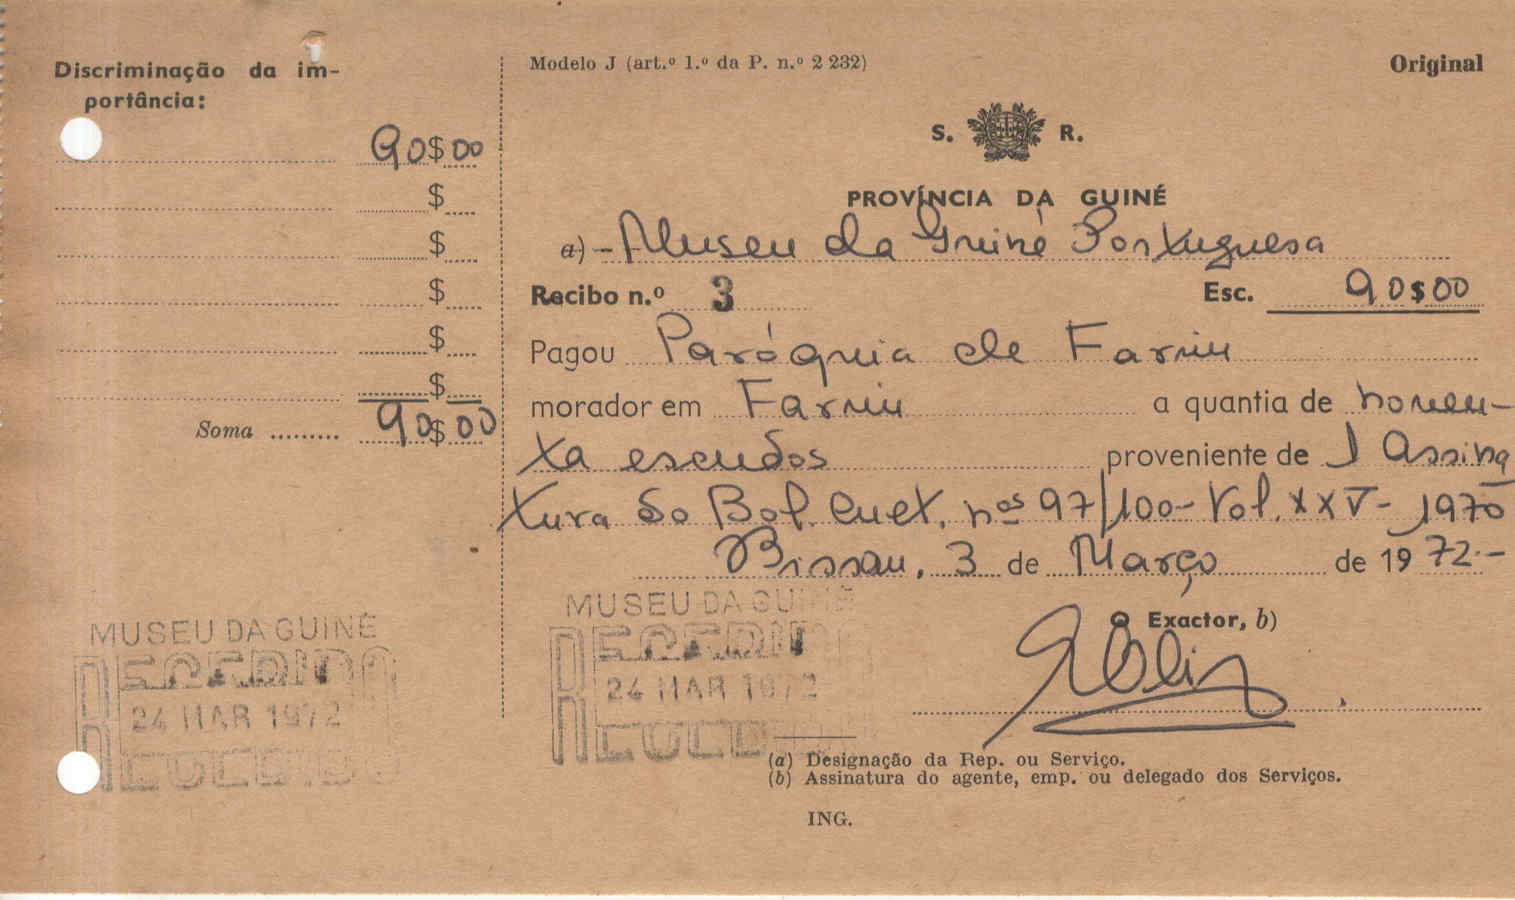 Discriminação da im-
portância:
90$00
$
$
$
$
$
Soma ......... 90$00
Modelo J (art.º 1.º da P. n.º 2 232)
Original
S. R.
PROVÍNCIA DA GUINÉ
a) - Museu da Guiné Portuguesa
Recibo n.º 3 Esc. 90$00
Pagou Paróquia de Farim
morador em Farim a quantia de noven-
ta escudos proveniente de 1 Assina
tura do Bol. Cult. nos 97/100 - Vol. XXV - 1970
Bissau, 3 de Março de 1972.-
O Exactor, b)
MUSEU DA GUINÉ
RECEBIDO
24 MAR 1972
MUSEU DA GUINÉ
RECEBIDO
24 MAR 1972
(a) Designação da Rep. ou Serviço.
(b) Assinatura do agente, emp. ou delegado dos Serviços.
ING.